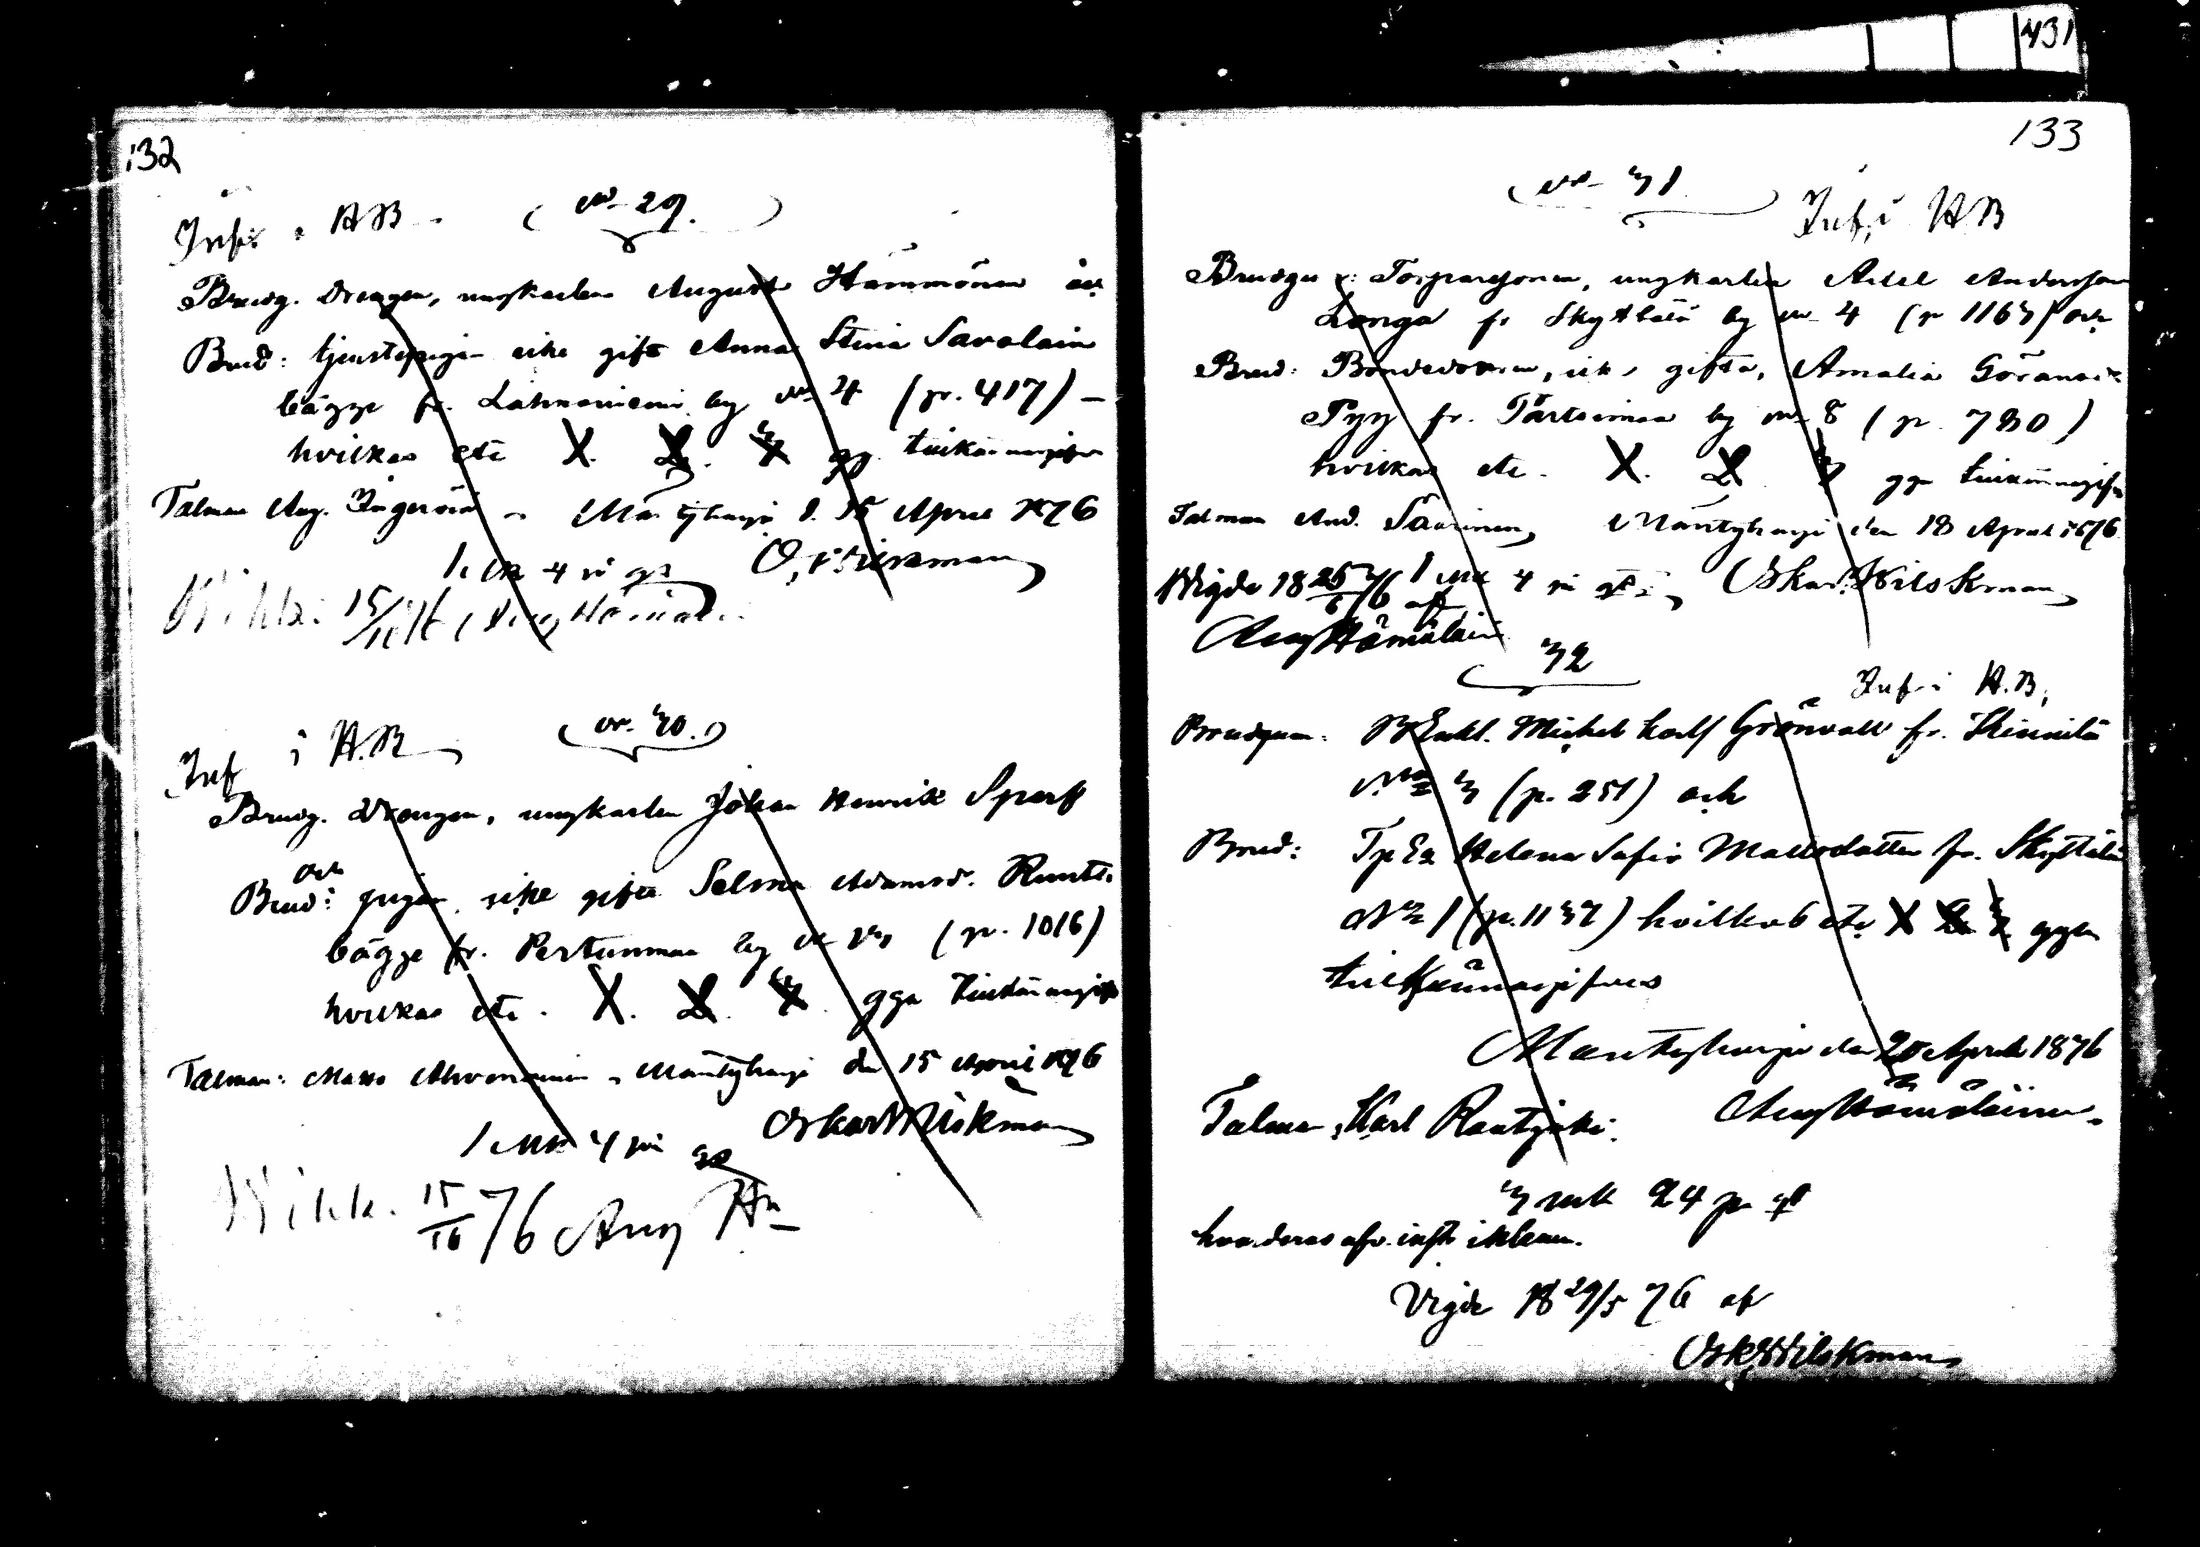 431
132
Inf. i HB
No 29.
Brudg. Drengen, ungkarlen August Hämmönen och
Brud: tjenstepigan icke gift Anna Stina Savolain
bägge fr. Lahnaniemi by No 4 (p. 417) —
hvilkas etc X. 2. 3 gg. tillkännagifves
Talman Aug. Mäntyharju d. 15 April 1876
1 Mk 4 pi qt O. Wilskman
Wihk. 15/10 76 Aug Hämäl.
Inf i H.B
No 30.
Brudg. Drengen, ungkarlen Johan Henrik Sparf
och
Brud: pigan, icke gifta Selma Adamsd. Ruutt.
bägge fr. Pertunmaa by No (p. 1016)
hvilkas etc. X. 2. 3. gga tillkännagifs
Talman: Matts Ahvenainen Mäntyharju den 15 April 1876
Oskar Wilskman
1 Mk 4 pi qt
Wihk. 15/10 76 Aug Hn
133
No 31
Inf. i HB
Brudgu: Torparesonen, ungkarlen Adel Andersson
Longa fr Skyttälä by No 4 (p 1163) och
Brud: Bondedottren, icke gifta, Amalia Göransd
Pyy fr. Särtsimaa by No 8 (p. 780)
hvilkas etc. X. 2 3 gga tillkännagifs
Talman And. Saarinen, Mäntyharju den 18 April 1876
Wigde 18 25/6 76 af 1 Mk 4 pi qt. Oskar Wilskman
Aug Hämäläin
32
Inf i H.B.
Brudgum. Michel Karl Grönvall fr. Kinnilä
No 3 (p. 251) och
Brud: Helena Sofia Mattsdotter fr. Skyttälä
No 1 (p. 1137) hvilkas etc X 2 3 ggn
tillkännagifves
Mäntyharju den 20 April 1876
Talman, Karl Rautjoki. Aug Hämäläinen.
3 mk 24 p qt
Vigde 18 29/5 76 af
Osk Wilskman